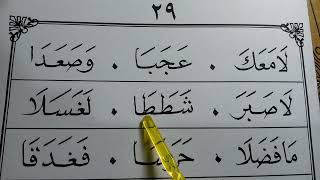 ٢٩
لَامَعَكَ . عَجَبَا . وَصَعَدَا
لَاصَبَرَ . شَطَطَا . لَغَسَلَا
مَافَضَلَا . فَغَدَقَا